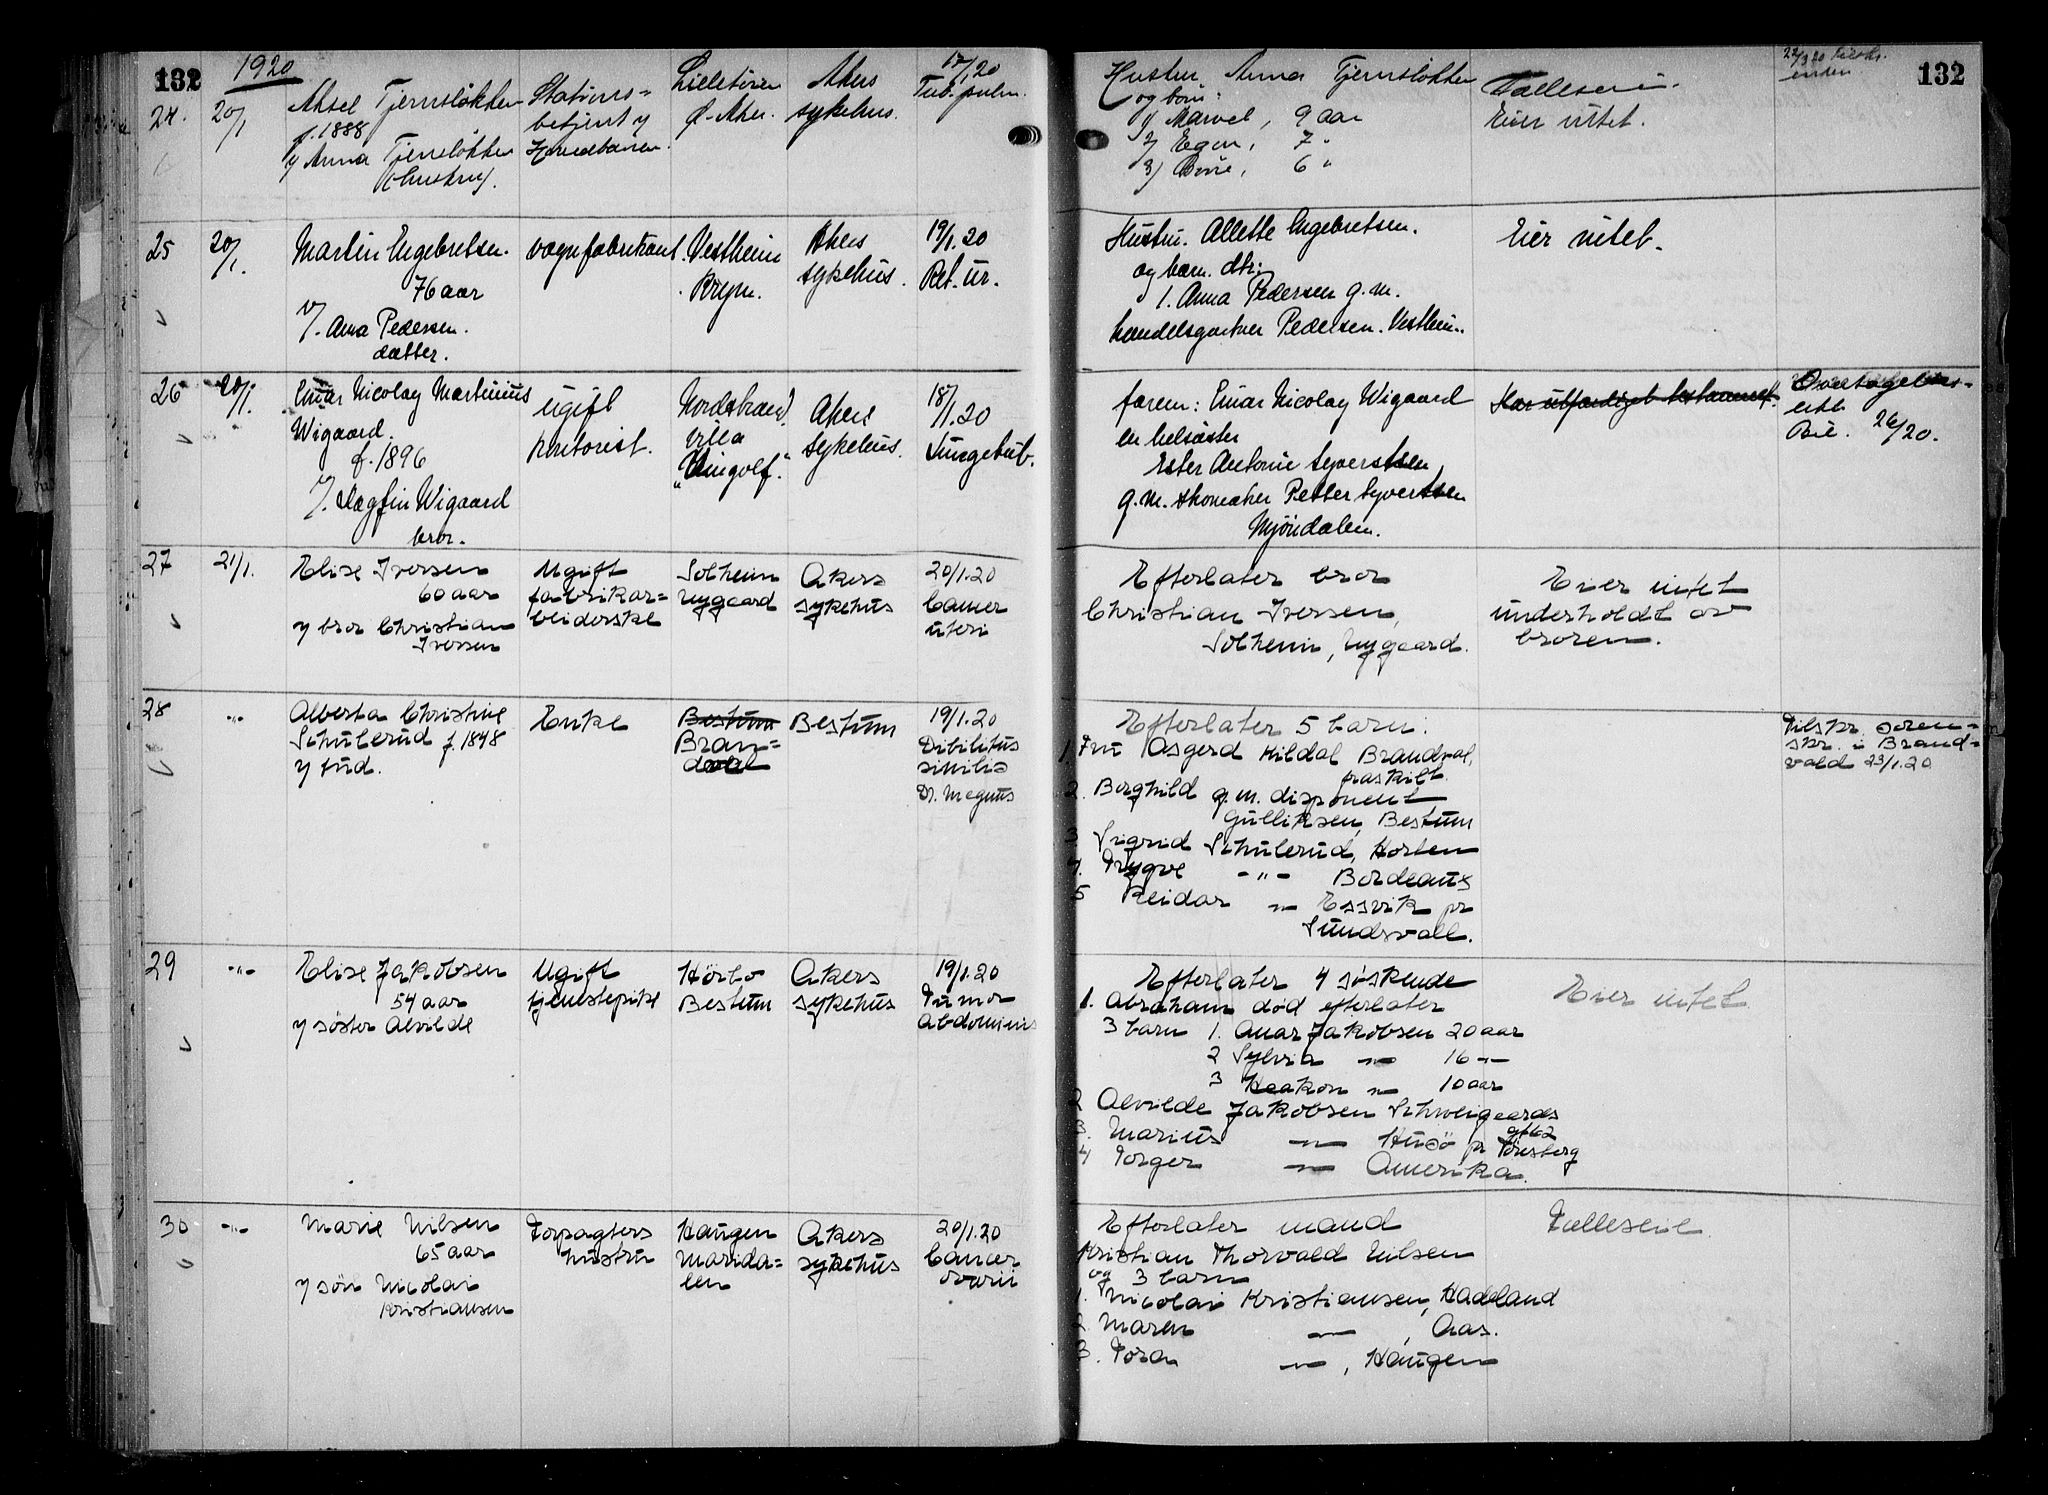 132
1920
24. 20/1 Aksel Tjernsløkken
f. 1888
v/ Anna Tjernsløkken
(hustru).
Stations-
betjent v
Hovedbanen
Lilletoren
Ø-Aker.
Akers
sykehus.
17/1.20
Tub. pulm.
25 20/1. Martin Engebretsen.
76 aar
v/. Anna Pedersen.
datter.
vognfabrikant.
Vestheim
Bryn.
Akers
sykehus.
19/1.20
Ret. ur.
26 20/1. Einar Nicolay Martinius
Wigaard.
f. 1896
v/. Dagfin Wigaard
bror.
ugift
kontorist.
Nordstrand
villa
"Vingolf".
Akers
sykehus.
18/1.20
Lungetub.
27 21/1. Elise Iversen
60 aar
v bror Christian
Iversen
Ugift
fabrikar=
beiderske
Solheim
Nygaard
Akers
sykehus
20/1.20
Cancer
uteri
28 -"- Alberta Christine
Schulerud f. 1848
v lud.
Enke
Bestum
Bran=
dval
Bestum
19/1.20
Dibilitus
sinilis
Dr. Magnus
29 -"- Elise Jakobsen
54 aar
v søster Alvilde
Ugift
tjenestepike
Hörbo
Bestum
Akers
sykehus
19/1.20
Tumor
abdominis
30 -"- Marie Nilsen
65 aar
v sön Nicolai
Kristiansen
Forpagters
hustru
Haugen
Marida=
len
Akers
sykehus
20/1.20
Cancer
ovarii
132
Hustru Anna Tjernsløkken
og barn:
1/ Marvel, 9 aar
2/ Egon, 7 "
3/ Börre, 6 "
Fælleseie.
Eier intet.
Hustru. Allette Engebretsen.
og barn. dtr:
1. Anna Pedersen g.m.
handelsgartner Pedersen. Vestheim.
Eier intet.
farem: Einar Nicolay Wigaard
en helsøster
Ester Antonie Syvertsen
g.m. skomaker Petter Syvertsen
Mjöndalen.
Har utfærdiget testament.
Overtagelses-
erkl.
Bil. 26/20.
Efterlater bror
Christian Iversen,
Solheim, Nygaard.
Eier intet
underholdt av
broren.
Efterlater 5 barn:
1. Fru Asgerd Kildal Brandval,
fraskilt.
2. Borghild g.m. disponent
Gulliksen, Bestum
3 Sigrid Schulerud, Horten
4. Trygve -"- Bordeaux
5 Reidar -"- Essvik pr
Sundsvall.
Tilskr. soren=
skr. i Brand=
vold 23/1.20
Efterlater 4 søskende
1. Abraham död efterlater
3 barn 1. Anar Jakobsen 20 aar
2 Sylvia -"- 16 -"-
3 Haakon -"- 10 aar
2 Alvilde Jakobsen Schweigaards
gt 62
3. Marius -"- Husö pr Tönsberg
4 Torger -"- Amerika.
Eier intet
Efterlater mand
Kristian Thorvald Nilsen
og 3 barn
1. Nicolai Kristiansen, Hadeland
2. Maren -"-, Aas.
3. Tora -"-, Haugen
Fælleseie.